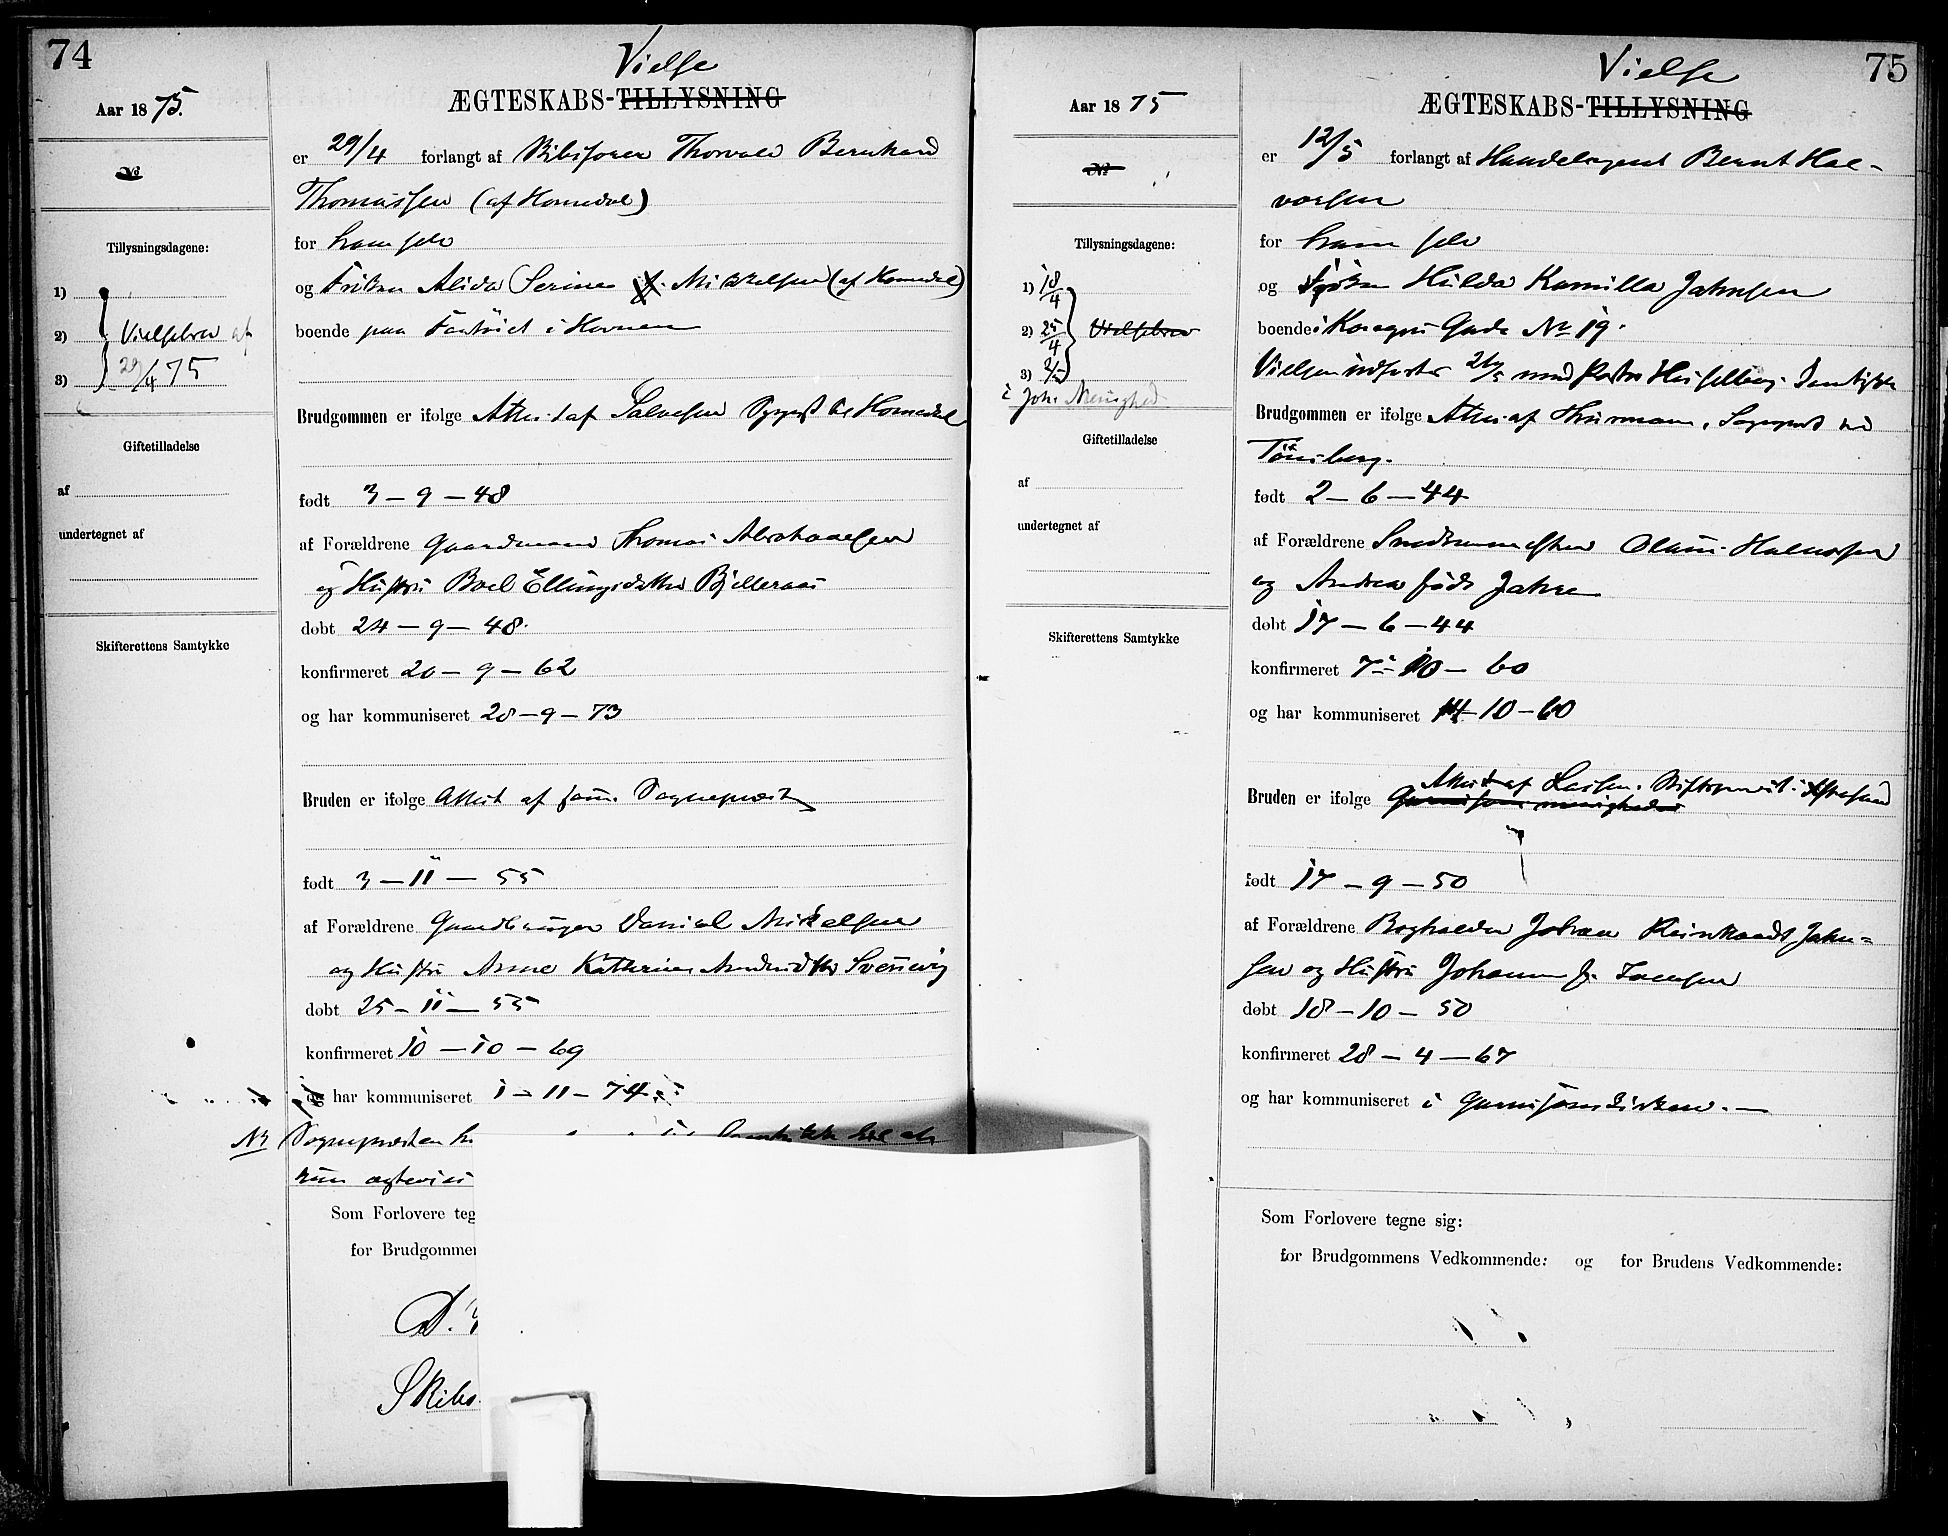 74
Vielse
ÆGTESKABS-TILLYSNING
Aar 1875.
No
Tillysningsdagene:
1)
2) Vielsebrev af
3) 29/4 75
Giftetilladelse
af
undertegnet af
Skifterettens Samtykke
er 29/4 forlangt af Skibsfører Thorvald Bernhard
Thomassen (af Homedal)
for ham selv
og Frøken Alida Serine Mikkelsen (af Homedal)
boende paa Fartøiet i Havnen
Brudgommen er ifølge Attest af Salvesen Sogneprest til Homedal
født 3-9-48
af Forældrene Gaardmand Thomas Abrahamsen
og Hustru Boel Ellingsdatter Bjelleraas
døbt 24-9-48.
konfirmeret 20-9-62
og har kommuniseret 28-9-73
Bruden er ifølge Attest af samme Sogneprest
født 3-11-55
af Forældrene Gaardbruger Daniel Mikkelsen
og Hustru Anne Kathrine Svennevig
døbt 25-11-55
konfirmeret 10-10-69
og har kommuniseret 1-11-74
NB Sognepresten
kun
Som Forlovere teg
for Brudgommen
D.
Skibs
75
Vielse
ÆGTESKABS-TILLYSNING
Aar 1875
No
Tillysningsdagene:
1) 18/4
2) 25/4 Vielsebrev
3) 2/5
i Joh. Menighed
Giftetilladelse
af
undertegnet af
Skifterettens Samtykke
er 12/5 forlangt af Handelsagent Bernt Hal-
vorsen
for ham selv
og Frøken Hilda Kamilla Jahnsen
boende i Kongens Gade No 19.
Vielsen udføres med Pastor Hesselbergs Samtykke
Brudgommen er ifølge Attest af Thurmann, Sogneprest ved
Tønsberg.
født 2-6-44
af Forældrene Smedemester Halvorsen
og Andrea født Jahre
døbt 17-6-44
konfirmeret 7-10-60
og har kommuniseret 14-10-60
Bruden er ifølge Attest af Lassen, Stiftsprovst i
Garnisonsmenigheden
født 17-9-50
af Forældrene Bogholder Johan Reinhardt Jahn-
sen og Hustru Johanne f.
døbt 18-10-50
konfirmeret 28-4-67
og har kommuniseret i Garnisonskirken.
Som Forlovere tegne sig:
for Brudgommens Vedkommende: og for Brudens Vedkommende: